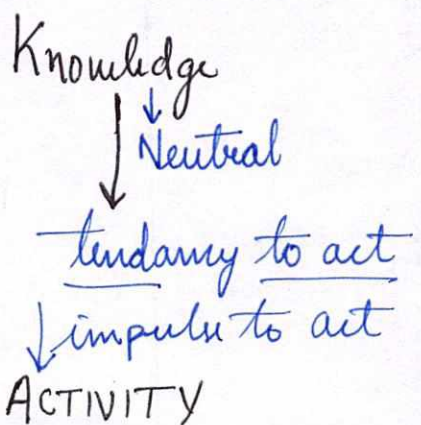 Knowledge
Neutral
tendancy to act
impulse to act
ACTIVITY